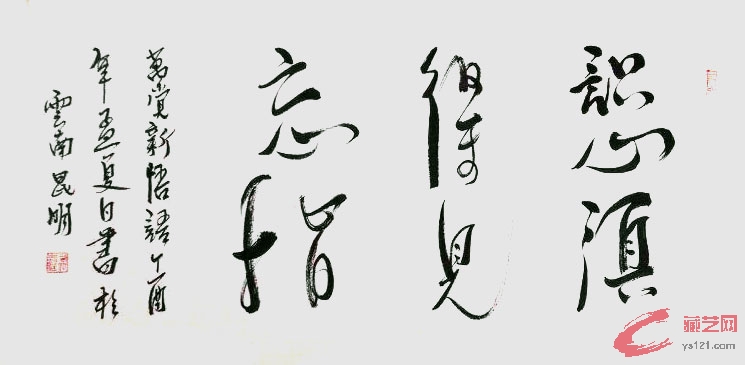 認湏
得見
忘指
萬覺新悟語丁酉
年孟夏日書於
雲南昆明
藏艺网
ys121.com